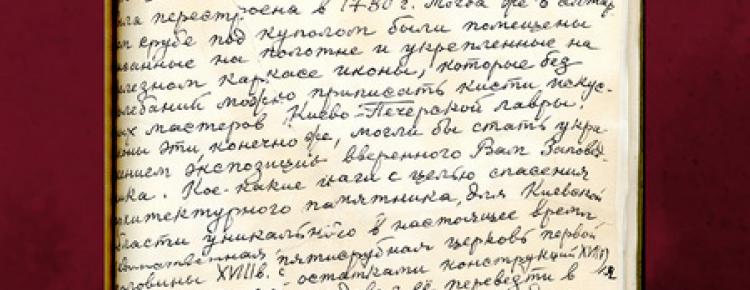 ыла перестроена в 1780 г. Тогда же в алтар
ом срубе под куполом были помещены
ованные на полотне и укрепленные на
елезном каркасе иконы, которые без
олебаний можно приписать кисти искус-
ых мастеров Киево-Печерской лавры.
оны эти конечно же, могли бы стать укра-
нием экспозиций вверенного Вам Запове
ика. Кое-какие шаги с целью спасения
хитектурного памятника, для Киевской
бласти уникального в настоящее время,
динственная пятисрубная церковь первой
оловины XVIII в. с остатками конструкций XVII)
её перевезти в